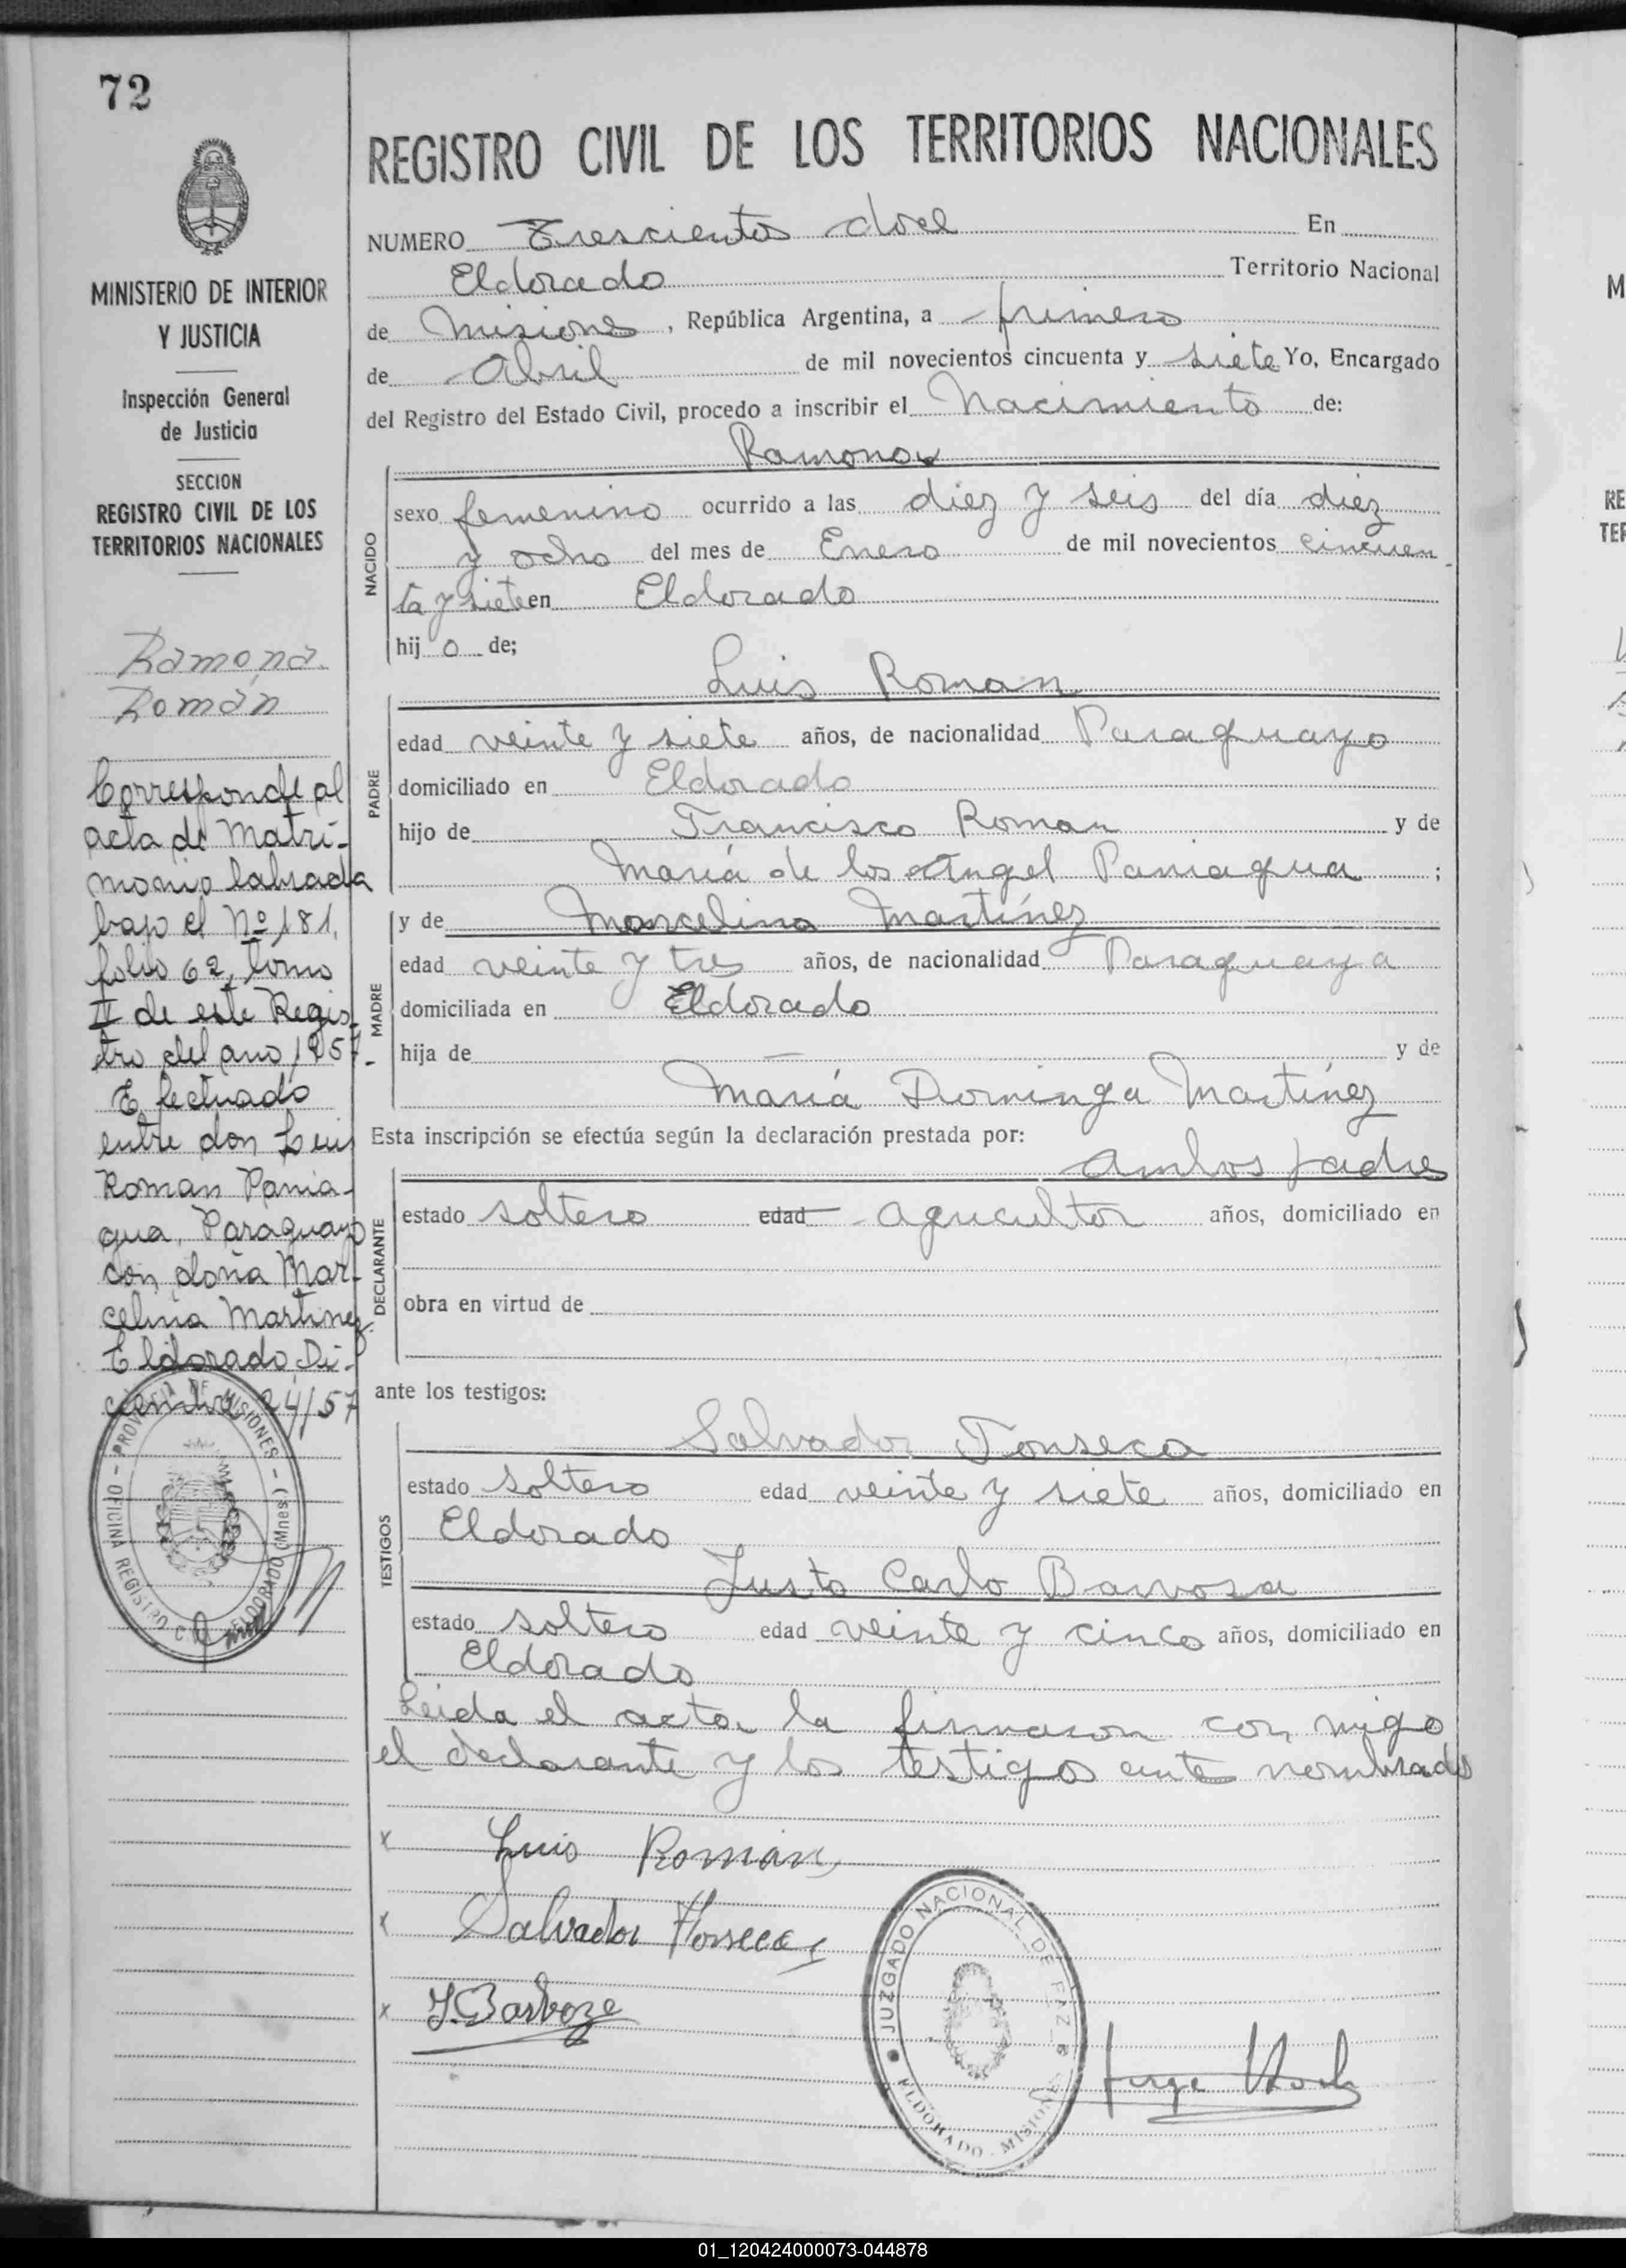 72
MINISTERIO DE INTERIOR
Y JUSTICIA
Inspección General
de Justicia
SECCION
REGISTRO CIVIL DE LOS
TERRITORIOS NACIONALES
Ramona
Román
Corresponde al
acta de Matri-
monio labrada
bajo el Nº 181,
folio 62, tomo
II de este Regis-
tro del año 1957.-
Efectuado
entre don Luis
Roman Pania-
gua, Paraguayo
con doña Mar-
celina Martinez.
Eldorado, Di-
ciembre 24/57
PROVINCIA DE MISIONES - ELDORADO (Mnes.) - OFICINA REGISTRO
REGISTRO CIVIL DE LOS TERRITORIOS NACIONALES
NUMERO Trescientos doce En
Eldorado Territorio Nacional
de Misiones, República Argentina, a primero
de Abril de mil novecientos cincuenta y siete Yo, Encargado
del Registro del Estado Civil, procedo a inscribir el Nacimiento de:
NACIDO
Ramona
sexo femenino ocurrido a las diez y seis del día diez
y ocho del mes de Enero de mil novecientos cincuen
ta y siete en Eldorado
hij a de;
PADRE
Luis Roman
edad veinte y siete años, de nacionalidad Paraguayo
domiciliado en Eldorado
hijo de Francisco Roman y de
María de los Angel Paniagua ;
MADRE
y de Marcelina Martínez
edad veinte y tres años, de nacionalidad Paraguaya
domiciliada en Eldorado
hija de — y de
María Dominga Martínez
Esta inscripción se efectúa según la declaración prestada por:
DECLARANTE
Ambos padres
estado soltero edad agricultor años, domiciliado en
obra en virtud de
ante los testigos:
TESTIGOS
Salvador Fonseca
estado soltero edad veinte y siete años, domiciliado en
Eldorado
Justo Carlo Barvosa
estado soltero edad veinte y cinco años, domiciliado en
Eldorado
Leida el acta la firmaron con migo
el declarante y los testigos ante nombrado
x Luis Roman
x Salvador Fonseca
x J. Barboza
JUZGADO NACIONAL DE PAZ
ELDORADO - MISIONES
01_120424000073-044878